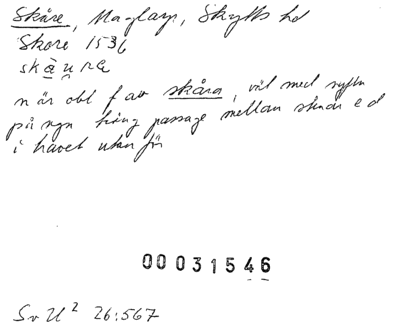 Skåre, Maglarp, Skytts hd
Skore 1536
skàu̠ra
när obl f av skåra, väl med syftn
på ngn trång passage mellan stenar e d
i havet utan för
00031546
SvU² 26:567